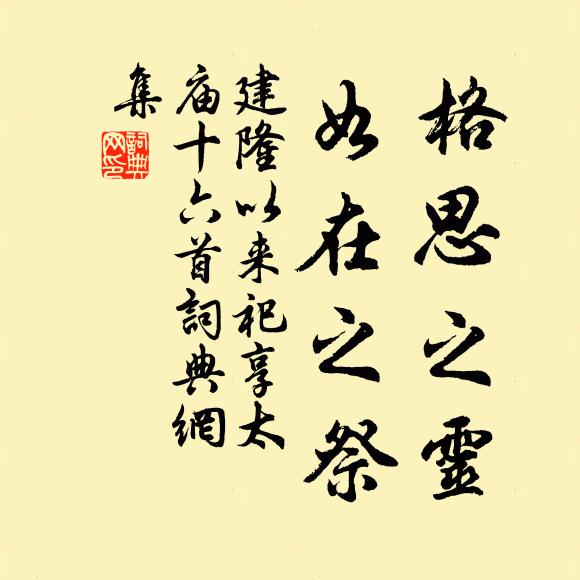 格思之靈
如在之祭
建隆以来祀享太
庙十六首詞典網
集
詞典
网印